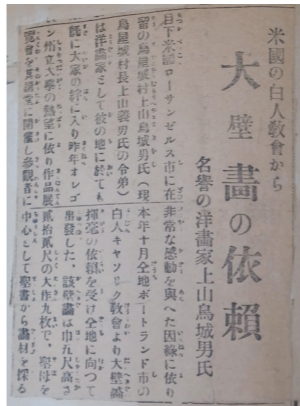 米國の白人教會から
大壁畫の依賴
名譽の洋畫家上山鳥城男氏
目下米國ローサンゼルス市に在
留の鳥屋城村上山鳥城男氏(現
鳥屋城村長上山義男氏の令弟)
は洋畫家として彼の地に於ても
既に大家の に入り昨年オレゴ
ン州立大學の熱望に依り作品展
覽會を其講堂に開催し參觀者に
非常な感動を與へた因緣に依り
本年十月仝地ポートランド市の
白人キヤソリツク教會より大壁畫
揮毫の依賴を受け仝地に向つて
出發した、該壁畫は巾九尺高さ
貳拾貳尺の大作九枚で、聖母を
中心として聖書から畵材を採る